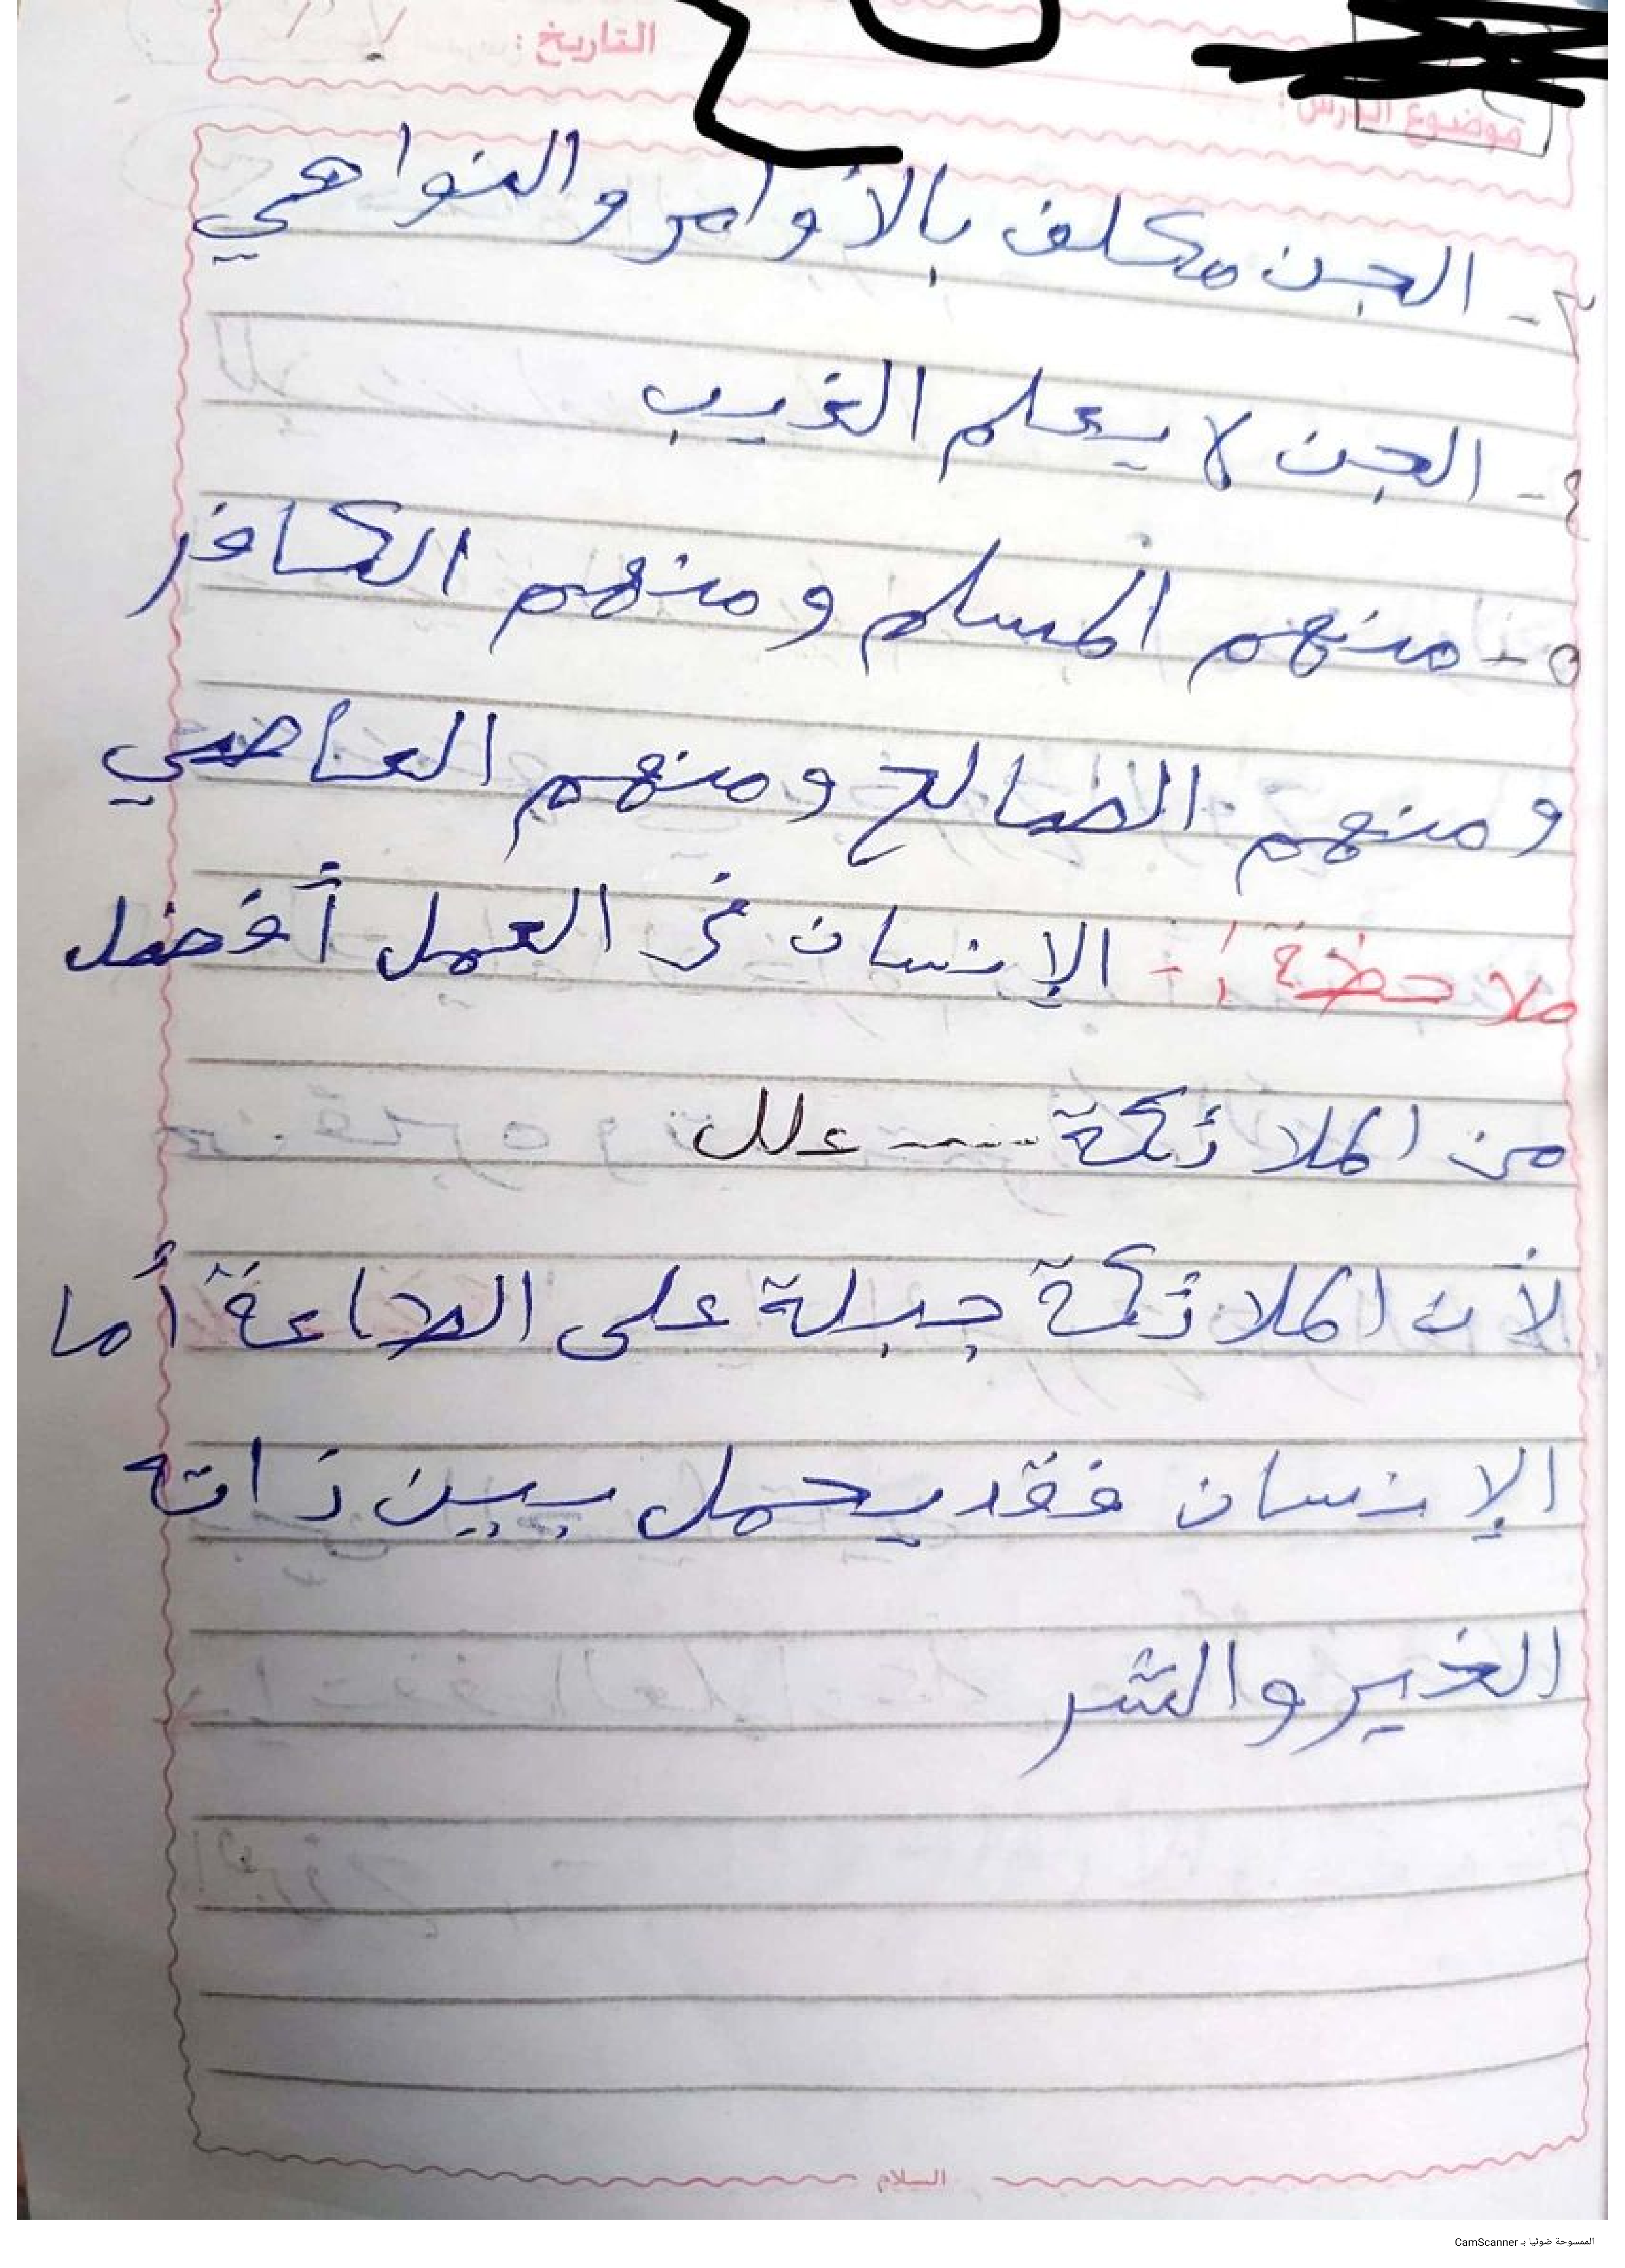 التاريخ : / /
موضوع الدرس :
٣- الجن مكلف بالأوامر والنواهي
٤- الجن لا يعلم الغيب
٥- منهم المسلم ومنهم الكافر
ومنهم الصالح ومنهم العاصي
ملاحظة :- الإنسان في العمل أفضل
من الملائكة ---- علل
لأن الملائكة جبلة على الطاعة أما
الإنسان فقد يحمل بين ذاته
الخير والشر
السلام
الممسوحة ضوئيا بـ CamScanner